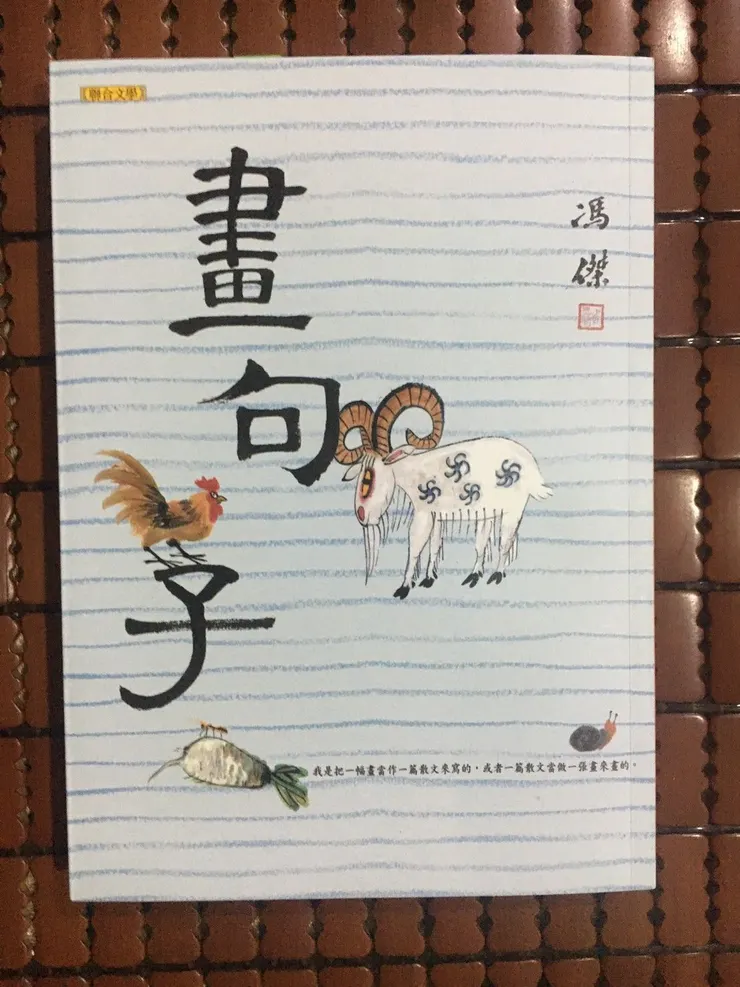 聯合文學
畫句子
馮傑
我是把一幅畫當作一篇散文來寫的,或者一篇散文當做一張畫來畫的。